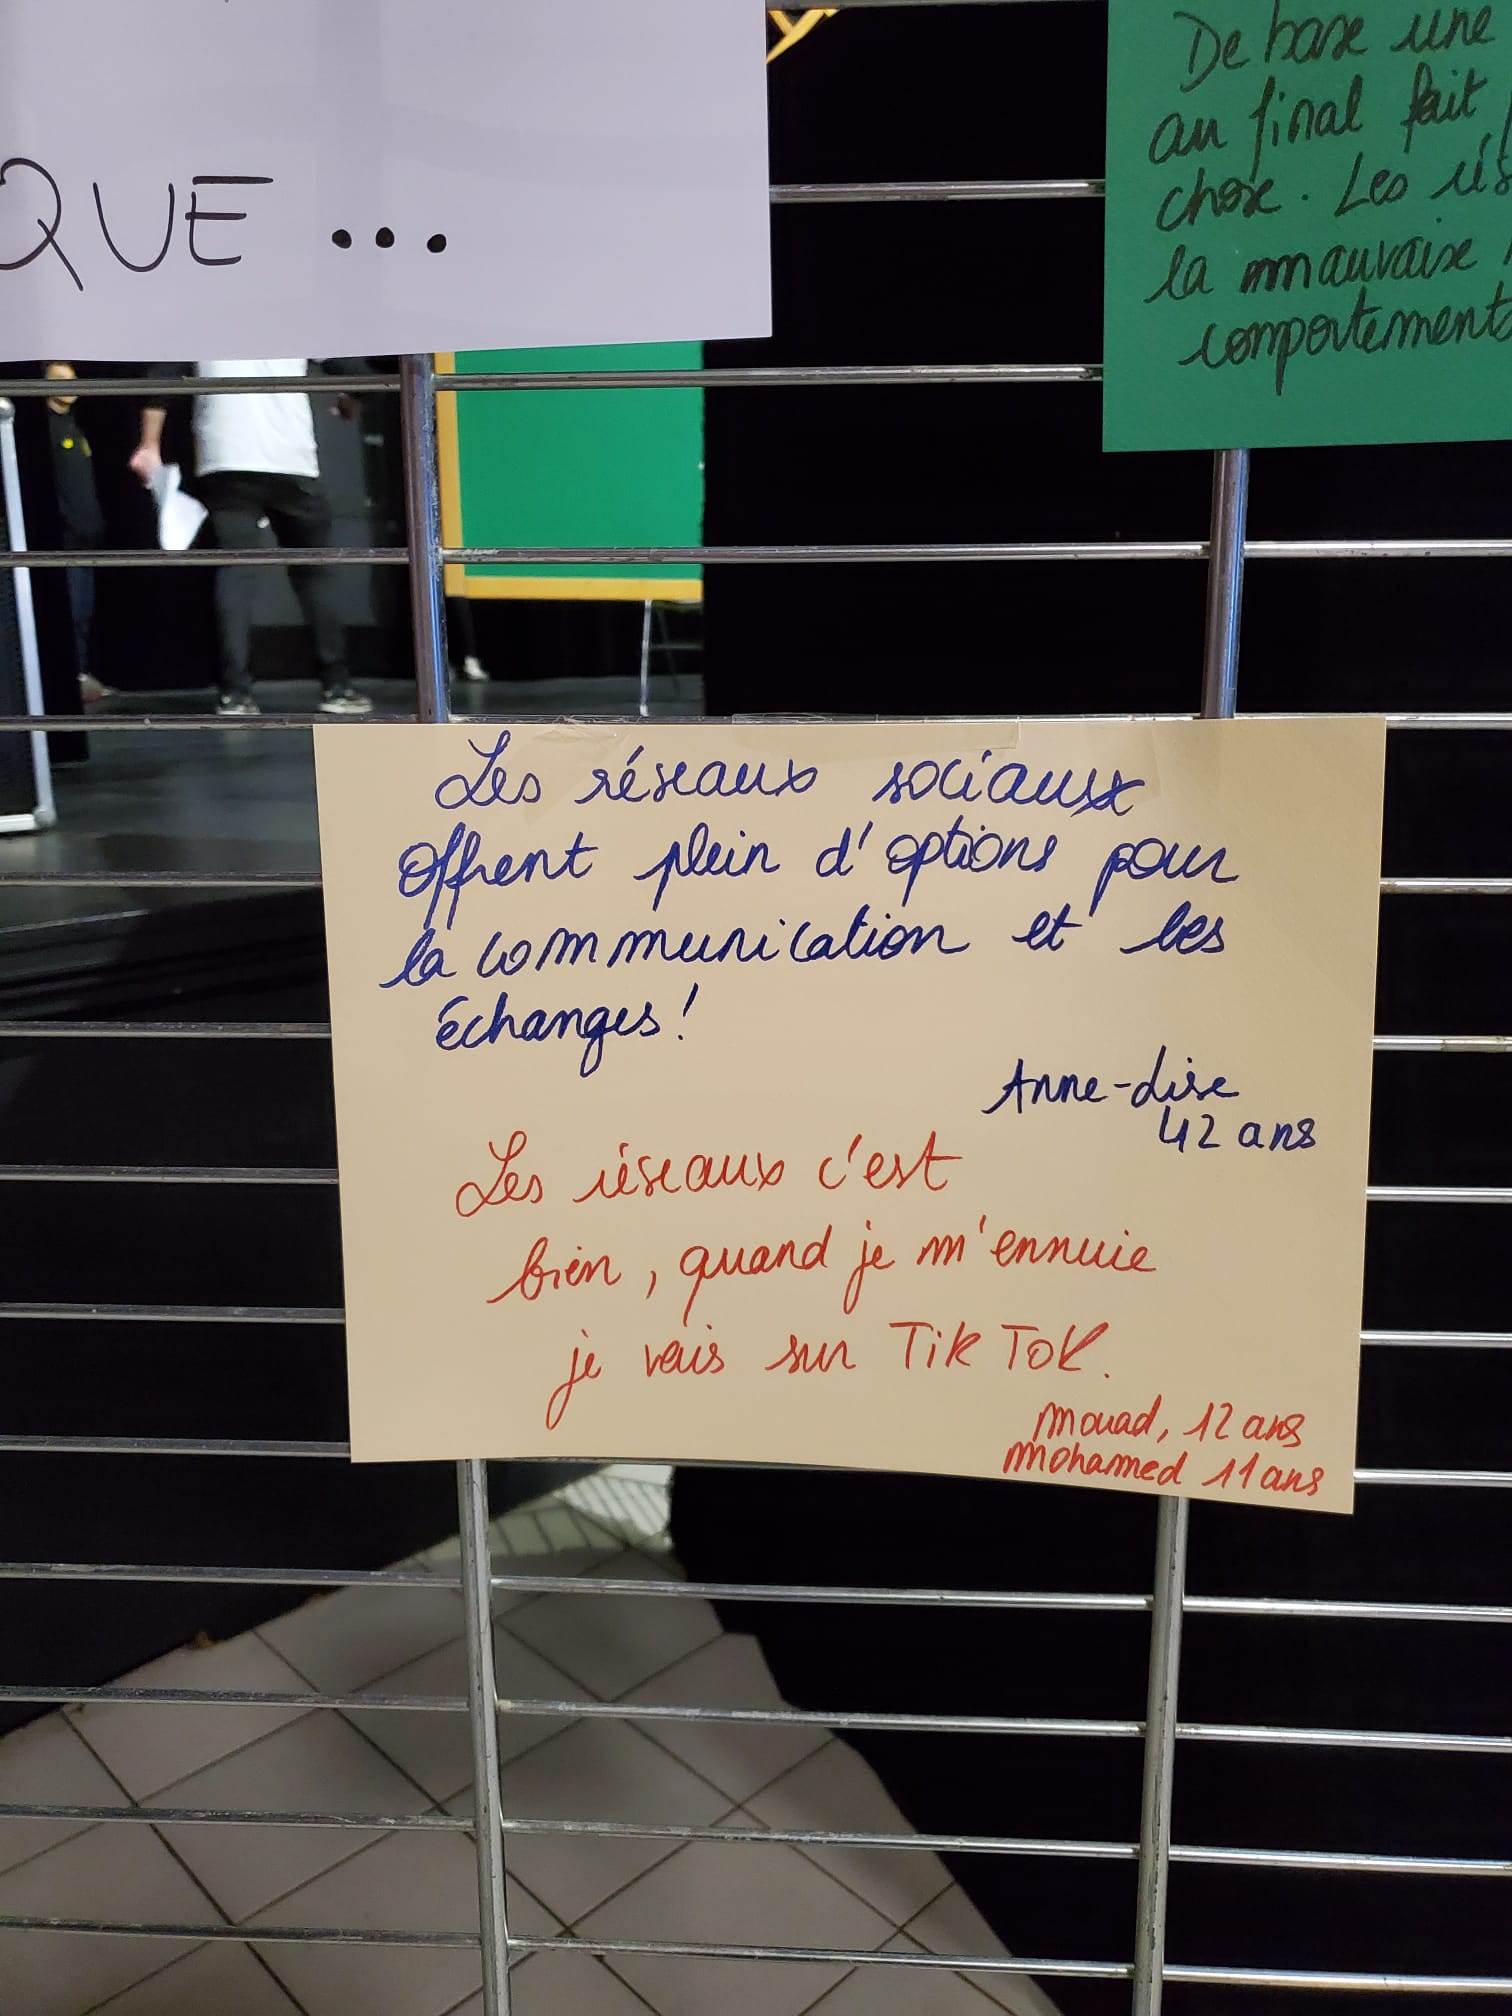 QUE...
De base une
au final fait
chose. Les rés
la mauvaise
comportement
Les réseaux sociaux
offrent plein d'options pour
la communication et les
échanges!
Anne-Lise
42 ans
Les réseaux c'est
bien, quand je m'ennuie
je vais sur TikTok.
Mouad, 12 ans
Mohamed 11 ans